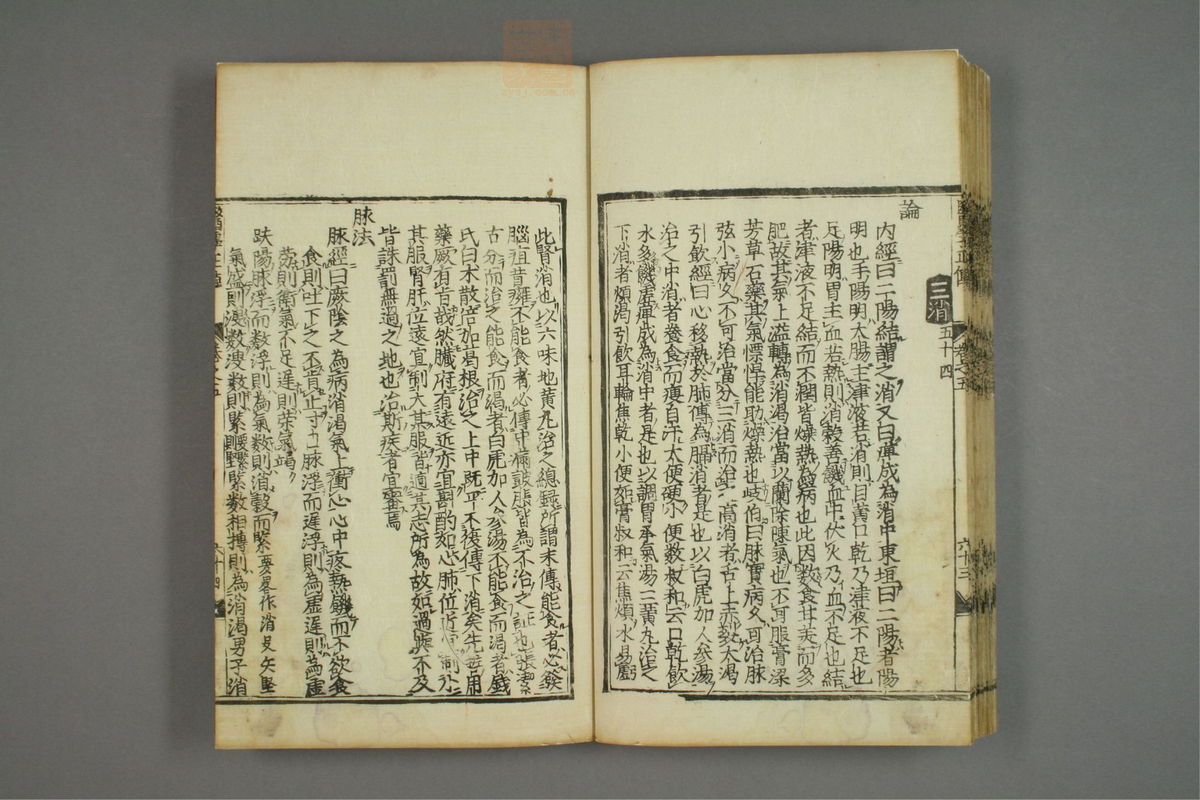 三消五十四
論
内經曰二陽結謂之消又曰癉成為消中東垣曰二陽者陽
明也手陽明大腸主津液若消則目黄口乾乃津液不足也
足陽明胃主血若熱則消穀善飢血中伏火乃血不足也結
者津液不足結而不潤皆燥熱為病也此因數食甘美而多
肥故其氣上溢轉為消渴治當以蘭除陳氣也不可服膏梁
芳草石藥其氣慓悍能助燥熱也岐伯曰脉實病久可治脉
弦小病久不可治當分三消而治高消者舌上赤裂大渴
引飲經曰心移熱於肺傳為膈消者是也以白虎加人參湯
治之中消者善食而瘦自汗大便硬小便數叔和云口乾飲
水多饑虛癉成為消中者是也以調胃承氣湯三黄丸治之
下消者煩渴引飲耳輪焦乾小便如膏叔和云焦煩水易虧
六十三
此腎消也以六味地黄丸治之總録所謂末傳能食者必發
腦疽背癰不能食者必傳中滿皷脹皆為不治之証也張潔
古分而治之能食而渴者白虎加人參湯不能食而渴者錢
氏白朮散倍加葛根治之上中既平不復傳下消矣先哲用
藥厥有旨哉然臟府有遠近亦宜斟酌如心肺位近宜制小
其服腎肝位遠宜制大其服皆適其志所為故如過與不及
皆誅罰無過之地也治斯疾者宜審焉
脉法
脉經曰厥陰之為病消渴氣上衝心心中疼熱饑而不欲食
食則吐下之不肯止寸口脉浮而遲浮則為虛遲則為虛
勞則衛氣不足遲則榮氣竭
趺陽脉浮而數浮則為氣數則消穀而緊要畧作消旻矢堅
氣盛則溲數溲數則緊堅緊數相搏則為消渴男子消
六十四